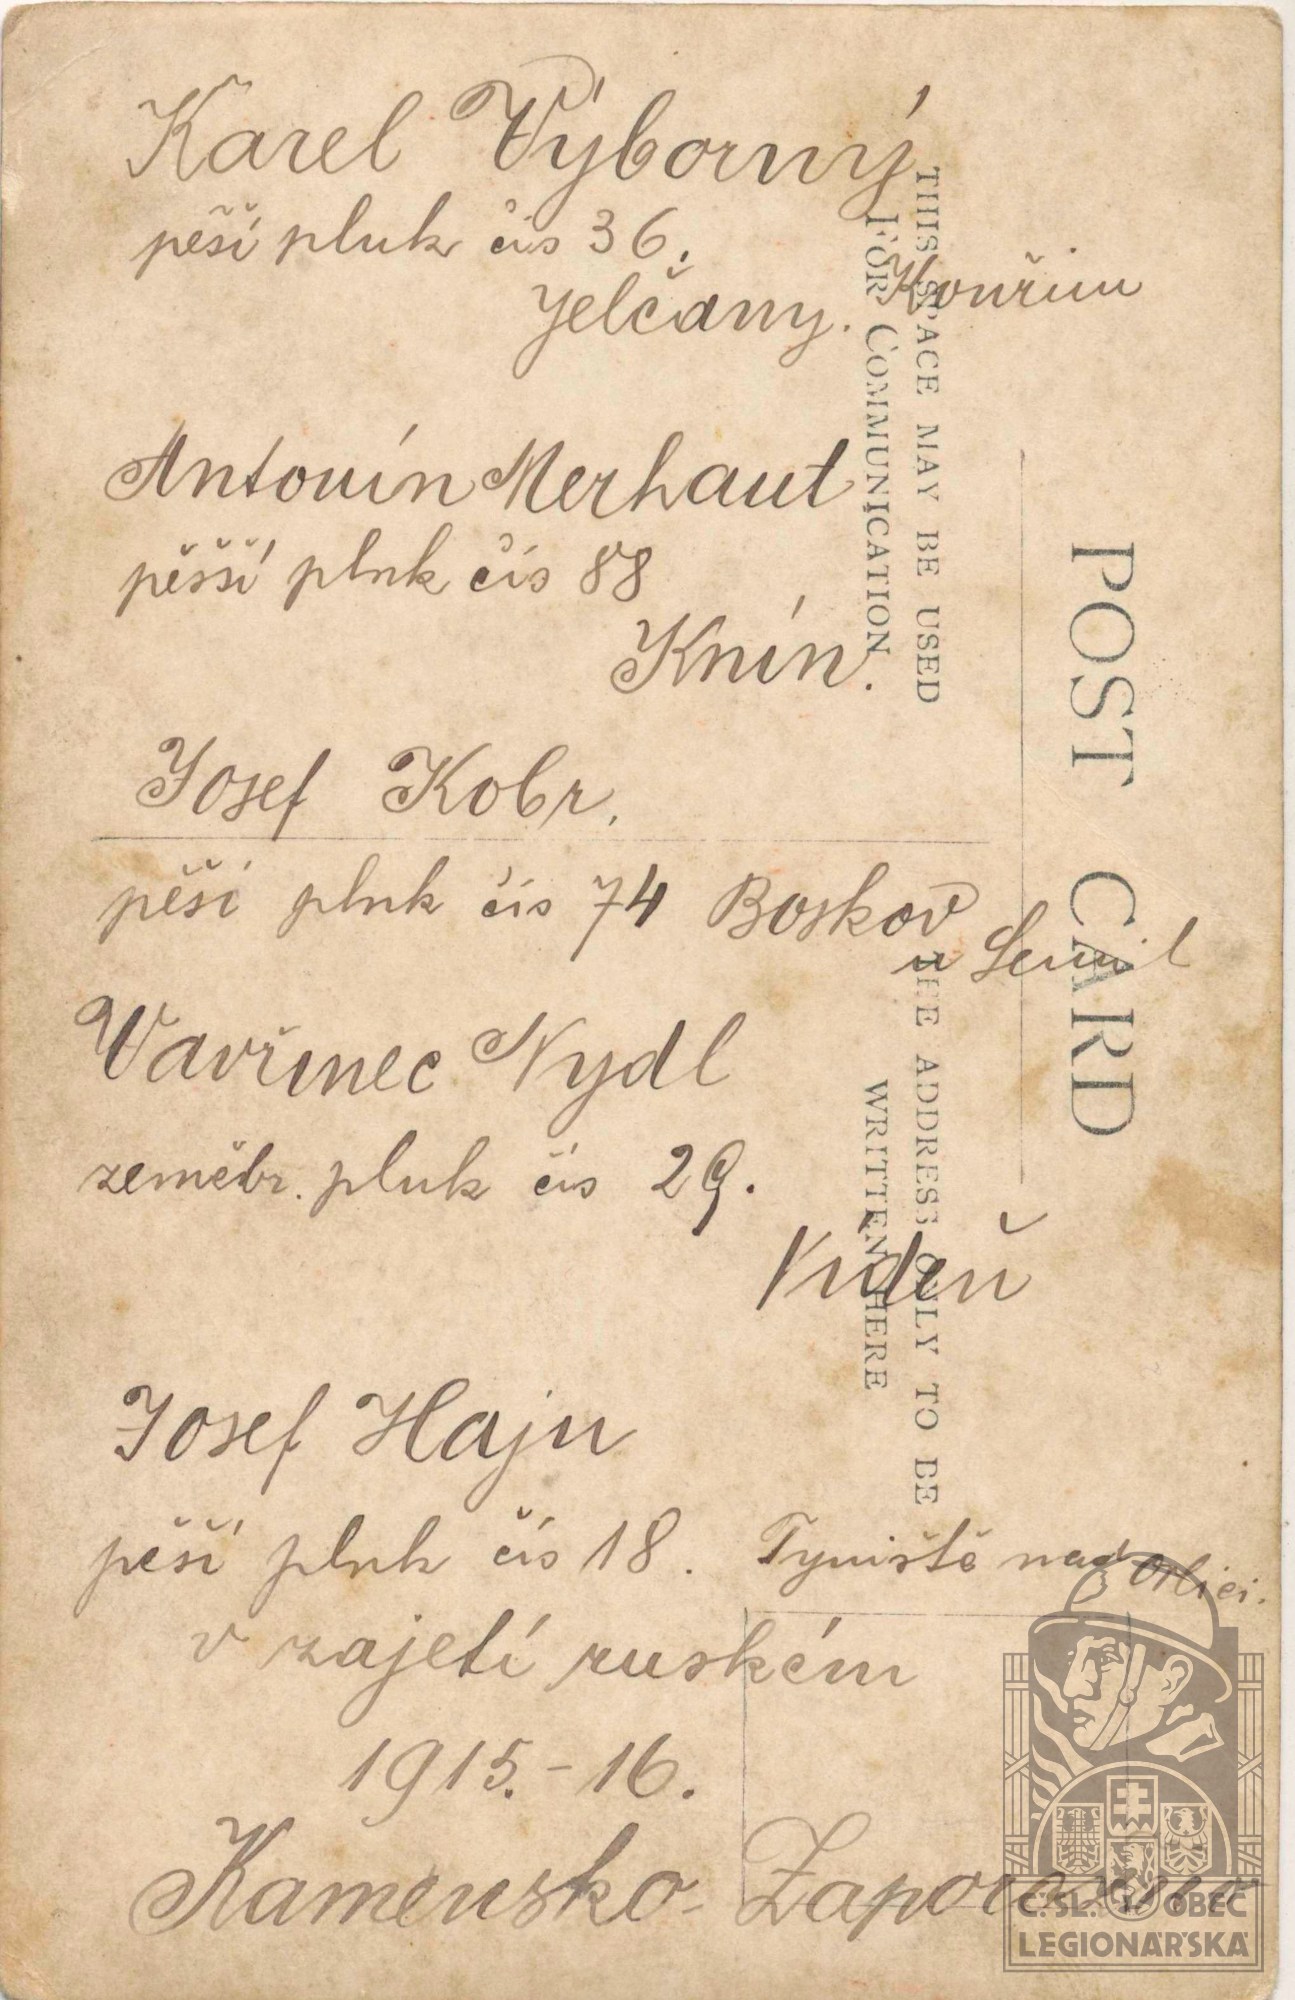 Karel Výborný
pěší pluk čís 36.
Jelčany. Kouřim
Antonín Merhaut
pěšší pluk čís 88
Knín.
Josef Kobr.
pěší pluk čís 74 Boskov
u Semil
Vavřinec Nydl
zeměbr. pluk čís 29.
Vídeň
Josef Hajn
pěší pluk čís 18. Tyniště nad Orlicí.
v zajetí ruském
1915.-16.
Kamensko-
THIS SPACE MAY BE USED
FOR COMMUNICATION
POST CARD
THE ADDRESS ONLY TO BE
WRITTEN HERE
Č.SL. OBEC
LEGIONÁŘSKÁ